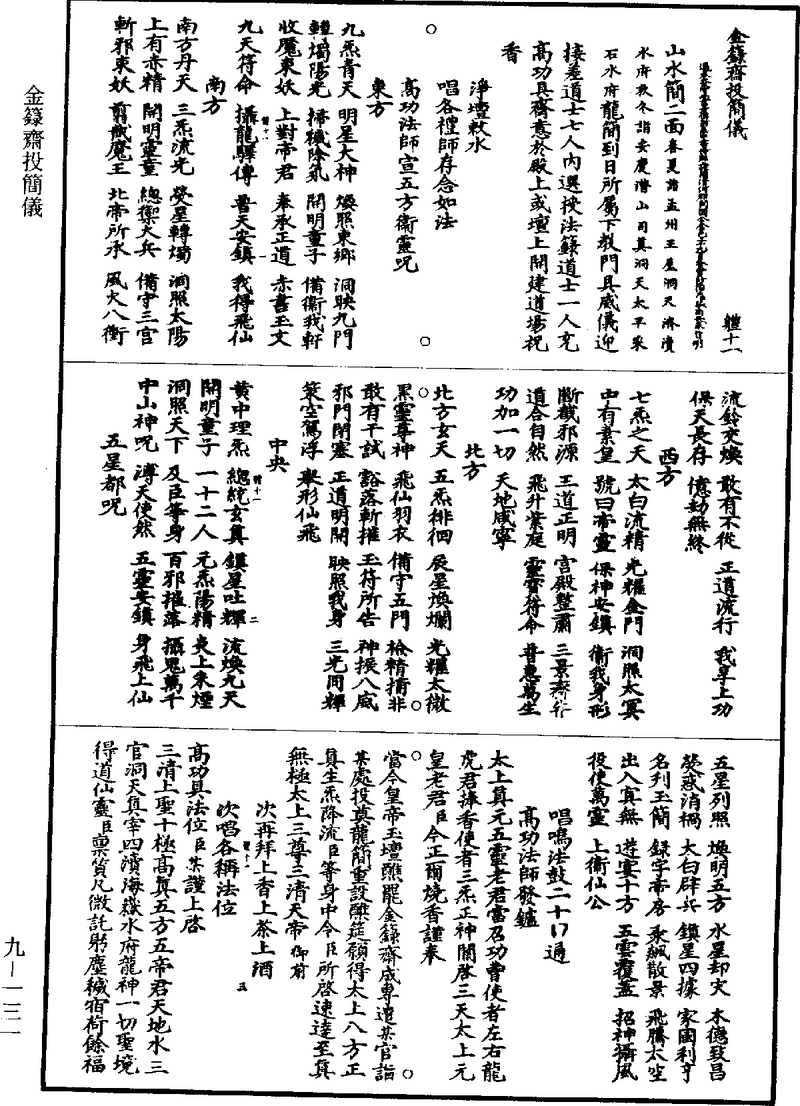 金籙齋投簡儀
金籙齋投簡儀 軆十一
山水簡二面春夏詣孟州王屋洞天濟瀆
水府秋冬詣安慶潛山司真洞天太平采
石水府龍簡到日所屬下教門具威儀迎
接差道士七人內選授法籙道士一人充
高功具齋意於殿上或壇上開建道場祝
香
淨壇敕水
唱各禮師存念如法
高功法師宣五方衛靈咒
東方
九炁青天 明星大神 煥照東鄉 洞映九門
轉燭陽光 掃穢除氛 開明童子 備衛我軒
收魔束妖 上對帝君 奉承正道 赤書玉文
九天符命 攝龍驛傳 普天安鎮 我得飛仙
南方
南方丹天 三炁流光 熒星轉燭 洞照太陽
上有赤精 開明靈童 總禦火兵 備守三宮
斬邪束妖 剪截魔王 北帝所承 風火八衝
流鈴交煥 敢有不從 正道流行 我享上功
保天長存 億劫無終
西方
七炁之天 太白流精 光耀金門 洞照太冥
中有素皇 號曰帝靈 保神安鎮 衛我身形
斷截邪源 王道正明 宮殿整肅 三景齊并
道合自然 飛升紫庭 靈寶符命 普惠萬生
功加一切 天地咸寧
北方
北方玄天 五炁徘徊 辰星煥爛 光耀太微
黑靈尊神 飛仙羽衣 備守五門 檢精捕非
敢有干試 豁落斬摧 玉符所告 神揆八威
邪門閉塞 正道明開 映照我身 三光同輝
策空駕浮 舉形仙飛
中央
黃中理炁 總統玄真 鎮星吐輝 流煥九天
開明童子 一十二人 元炁陽精 炎上朱煙
洞照天下 及臣等身 百邪摧落 攝鬼萬千
中山神咒 溥天使然 五靈安鎮 身飛上仙
五星都咒
五星列照 煥明五方 水星却灾 木德致昌
熒惑消禍 太白辟兵 鎮星四據 家國利亨
名列玉簡 錄字帝房 乘飆散景 飛騰太空
出入真無 遊宴十方 五雲覆蓋 招神攝風
役使萬靈 上衛仙公
唱鳴法鼓二十四通
高功法師發鑪
太上真元五靈老君當召功曹使者左右龍
虎君捧香使者三炁正神關啓三天太上元
皇老君臣今正爾燒香謹奉
當今皇帝玉壇醮罷金籙齋咸專遣某官詣
某處投奠龍簡重設醮筵願得太上八方正
真生炁降流臣等身中令臣所啓速達至真
無極太上三尊三清天帝御前
次再拜上香上茶上酒
次唱各稱法位
高功具法位臣某謹上啓
三清上聖十極高真五方五帝君天地水三
官洞天真宰四瀆海嶽水府龍神一切聖境
得道仙靈臣稟質凡微託軀塵穢宿荷餘福
九－一三一